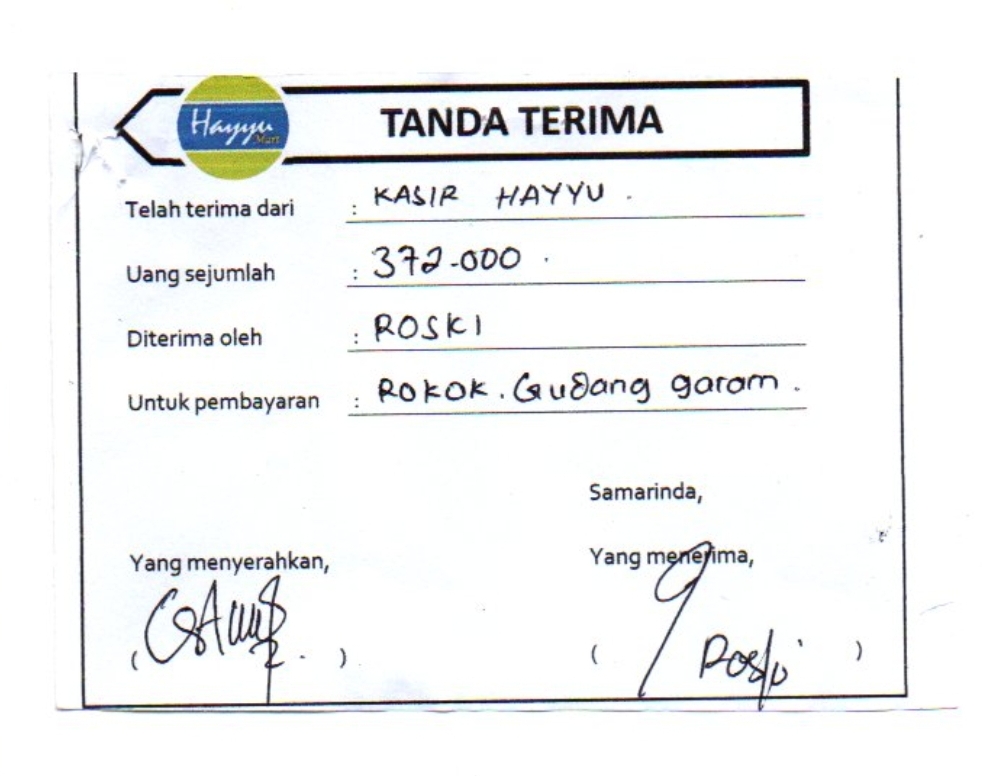 Hayyu
Mart
TANDA TERIMA
Telah terima dari : KASIR HAYYU .
Uang sejumlah : 372.000 .
Diterima oleh : ROSKI
Untuk pembayaran : ROKOK. Gudang garam .
Samarinda,
Yang menyerahkan, Yang menerima,
( ) ( Roski )